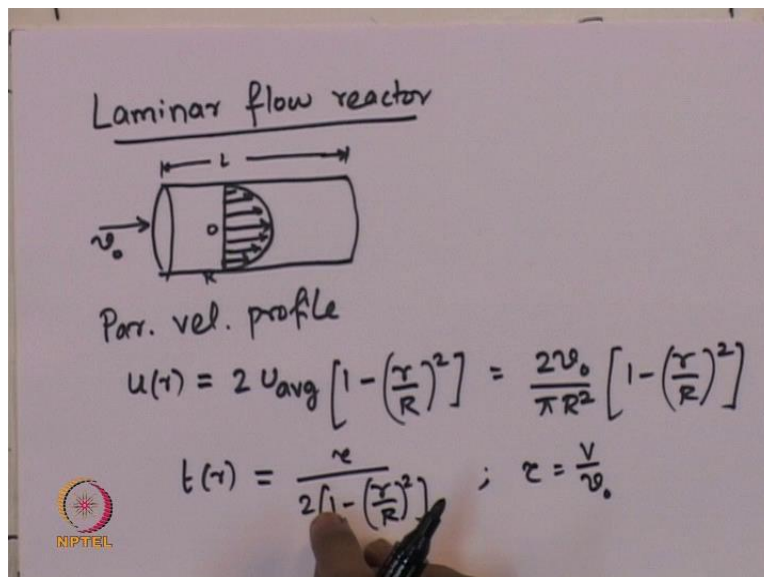 Laminar flow reactor
L
v₀
O
R
Par. vel. profile
u(r) = 2 Uavg [1 - (r/R)²] = 2v₀/πR² [1 - (r/R)²]
t(r) = τ / 2[1 - (r/R)²] ; τ = V/v₀
NPTEL